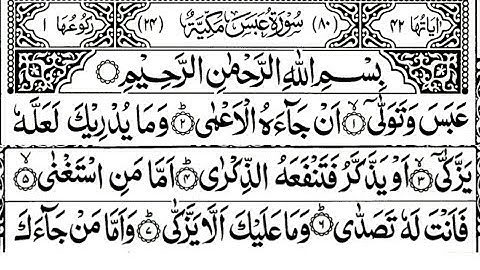 اٰیَاتُهَا ٤٢ (٨٠) سُوْرَةُ عَبَسَ مَكِّیَّةٌ (٢٤) رُكُوْعُهَا ١
بِسْمِ اللّٰهِ الرَّحْمٰنِ الرَّحِیْمِ
عَبَسَ وَتَوَلّٰۤیۙ﴿١﴾ اَنْ جَآءَهُ الْاَعْمٰیؕ﴿٢﴾ وَمَا یُدْرِیْكَ لَعَلَّهٗ
یَزَّكّٰۤیۙ﴿٣﴾ اَوْ یَذَّكَّرُ فَتَنْفَعَهُ الذِّكْرٰیؕ﴿٤﴾ اَمَّا مَنِ اسْتَغْنٰیۙ﴿٥﴾
فَاَنْتَ لَهٗ تَصَدّٰیؕ﴿٦﴾ وَمَا عَلَیْكَ اَلَّا یَزَّكّٰیؕ﴿٧﴾ وَاَمَّا مَنْ جَآءَكَ